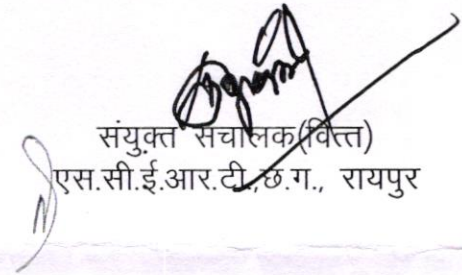 संयुक्त संचालक(वित्त)
एस.सी.ई.आर.टी.,छ.ग., रायपुर